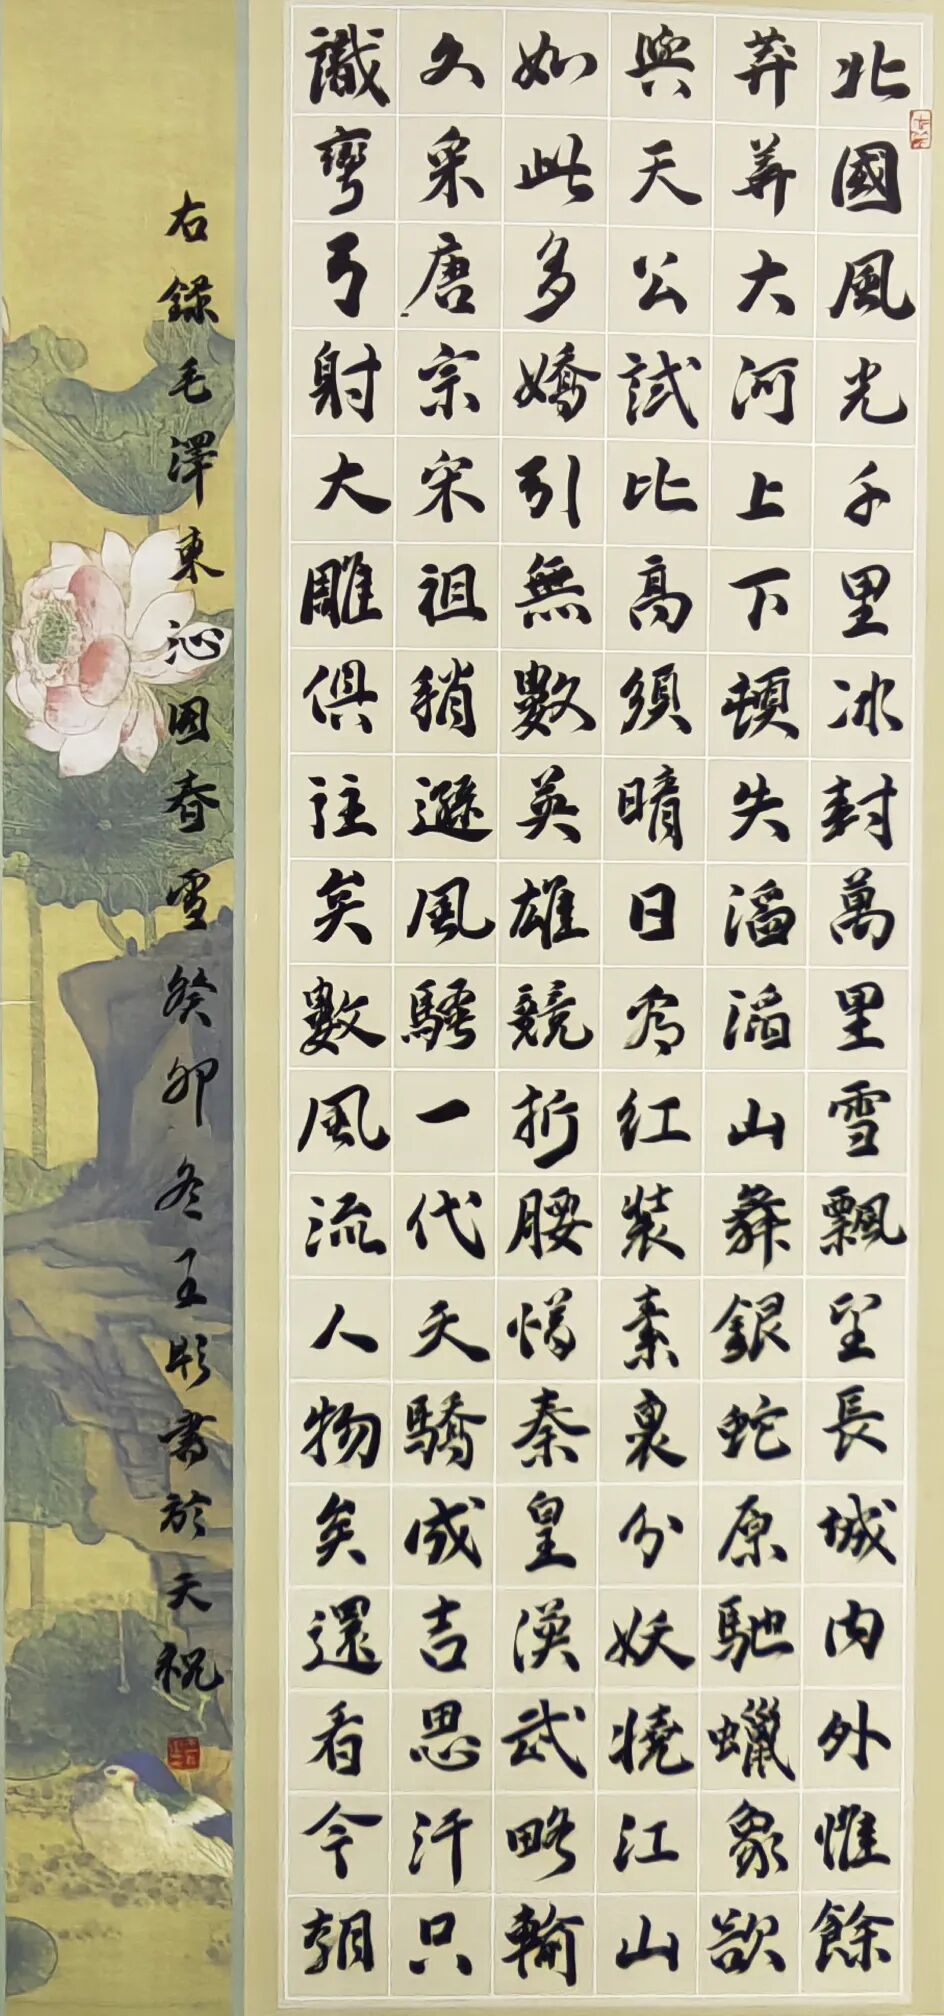 北國風光千里冰封萬里雪飄望長城內外惟餘
莽莽大河上下頓失滔滔山舞銀蛇原馳蠟象欲
與天公試比高須晴日看紅裝素裹分妖嬈江山
如此多嬌引無數英雄競折腰惜秦皇漢武略輸
文采唐宗宋祖稍遜風騷一代天驕成吉思汗只
識彎弓射大雕俱往矣數風流人物矣還看今朝
右錄毛澤東沁園春雪癸卯冬王彤書於天祝